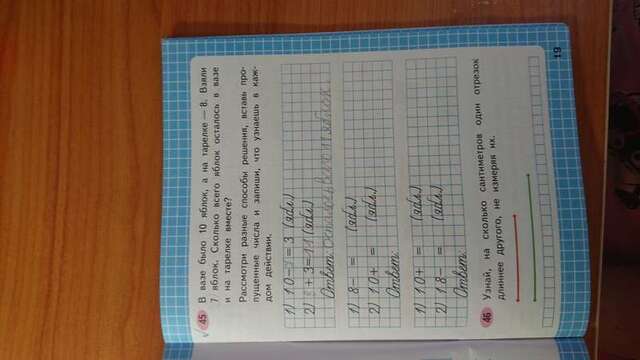 45 В вазе было 10 яблок, а на тарелке — 8. Взяли
7 яблок. Сколько всего яблок осталось в вазе
и на тарелке вместе?
Рассмотри разные способы решения, вставь про-
пущенные числа и запиши, что узнаешь в каж-
дом действии.
1) 10-7=3 (ябл.)
2) 8+3=11 (ябл.)
Ответ: осталось всего 11 яблок.
1) 8- = (ябл.)
2) 10+ = (ябл.)
Ответ:
1) 10+ = (ябл.)
2) 18- = (ябл.)
Ответ:
46 Узнай, на сколько сантиметров один отрезок
длиннее другого, не измеряя их.
19